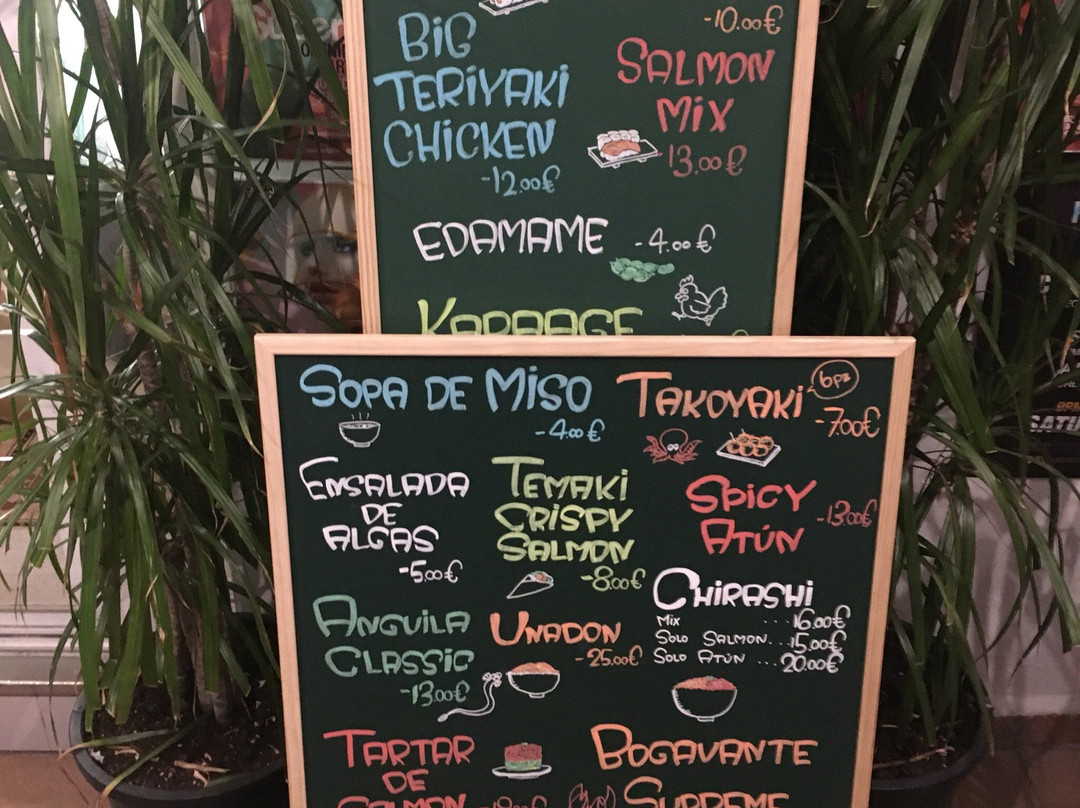 -10.00€
BIG
TERIYAKI
CHICKEN
-12.00€
SALMON
MIX
13.00€
EDAMAME -4.00€
KARAAGE
SOPA DE MISO
-4.00€
TAKOYAKI 6pz
-7.00€
ENSALADA
DE
ALGAS
-5.00€
TEMAKI
CRISPY
SALMON
-8.00€
SPICY
ATÚN
-13.00€
ANGUILA
CLASSIC
-13.00€
UNADON
-25.00€
CHIRASHI
MIX ...16.00€
SOLO SALMON...15.00€
SOLO ATÚN ...20.00€
TARTAR
DE
SALMON
BOGAVANTE
SUPREME